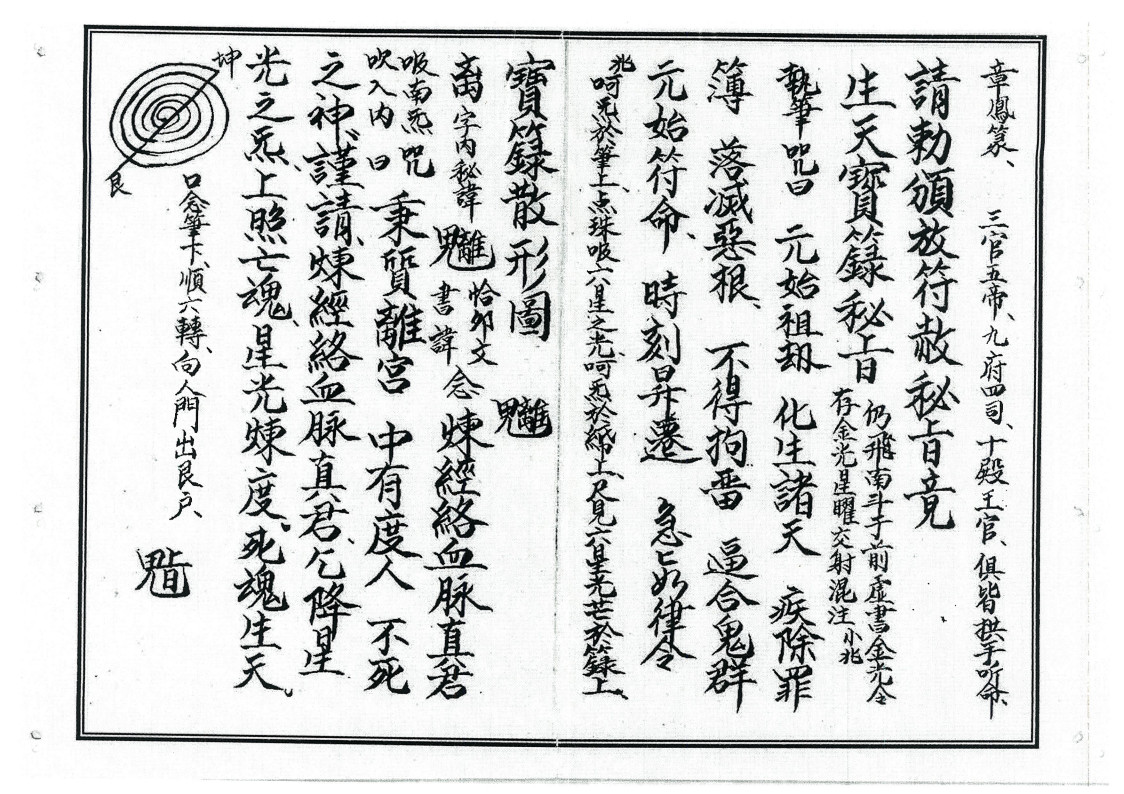 章鳳篆、 三官五帝、九府四司、十殿王官、俱皆拱手听命、
請勅頒放符赦秘旨竟
生天寶籙秘旨
仍飛南斗于前虚書金光全
存金光星曜交射混注 小兆
執筆咒曰 元始祖刼 化生諸天 疾除罪
簿 落滅惡根、 不得拘畱 逼合鬼群
元始符命、 時刻昇遷 急匕如律令
兆呵炁於筆上点珠吸六星之光呵炁於紙上只見六星光芒於籙上、
寶籙散形圖
离字内秘諱
恰卯文
書諱
念 煉經絡血脉真君
吸南炁咒
吹入内曰
秉質離宮 中有度人 不死
之神、謹請、煉經絡血脉真君、乞降星
光之炁、上照亡魂、星光煉度、死魂生天、
坤
艮
口念筆下、順六轉、向人門、出艮戶、